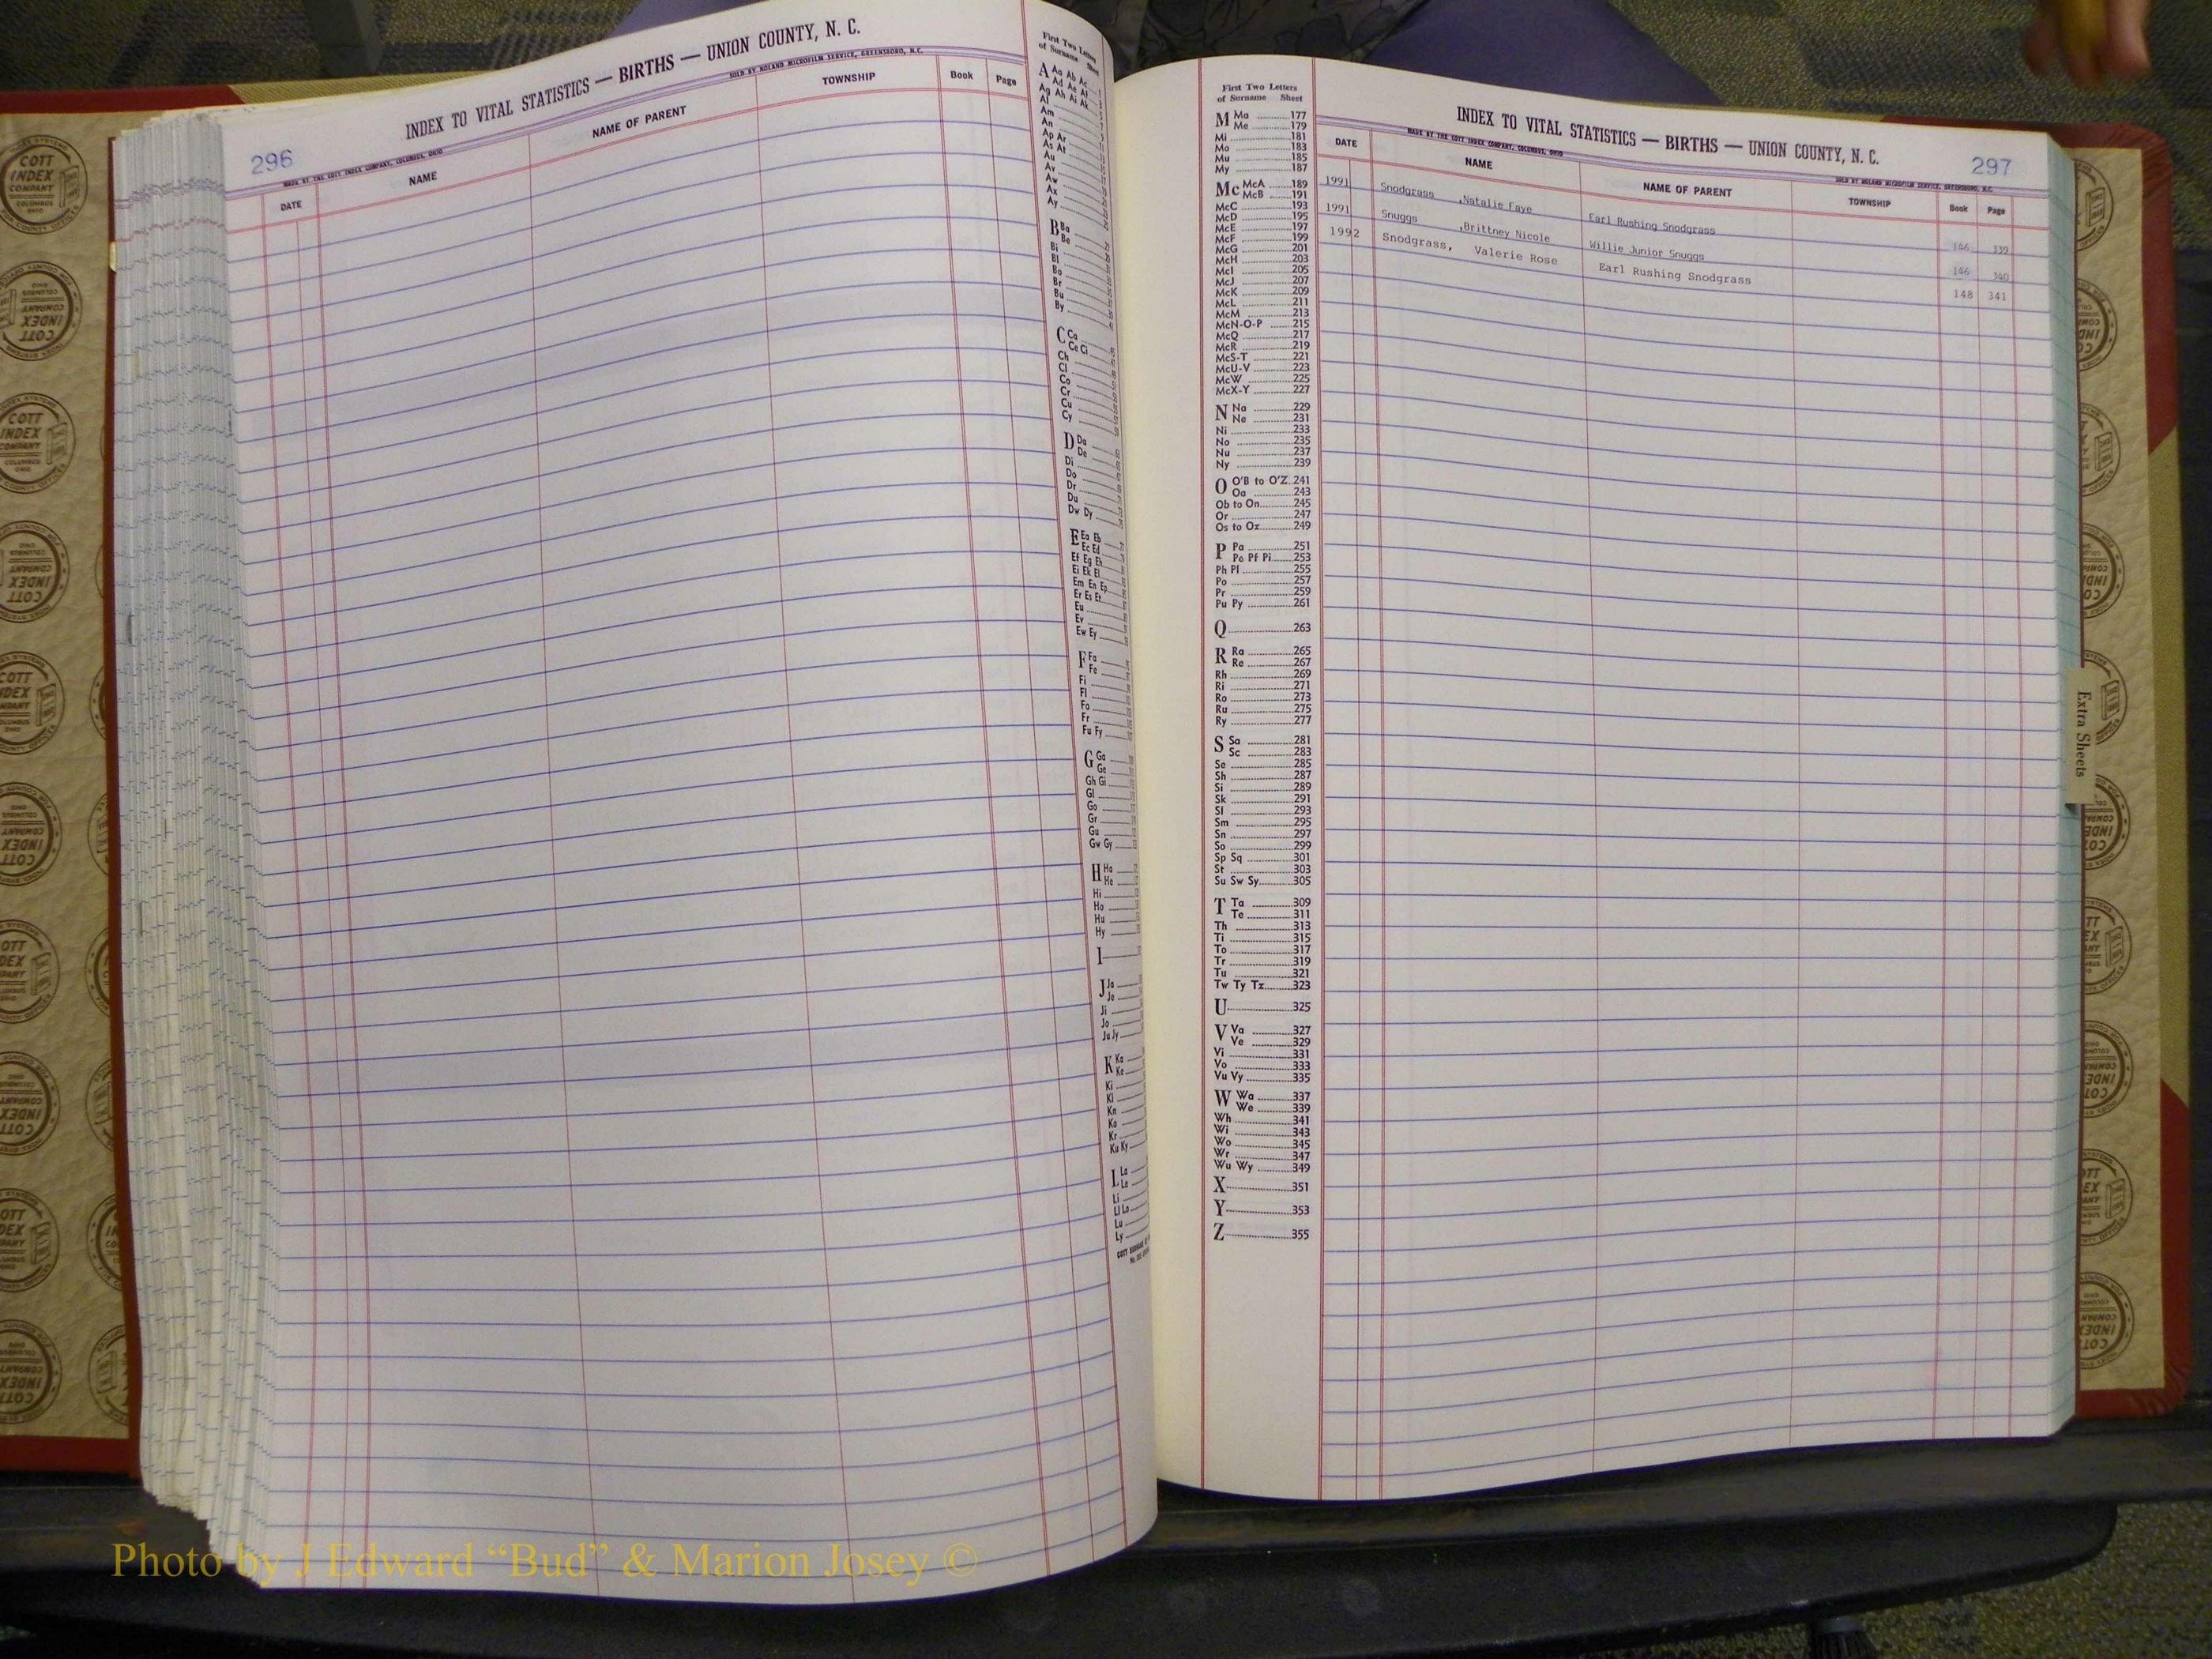 296
INDEX TO VITAL STATISTICS — BIRTHS — UNION COUNTY, N. C.
MADE BY THE COTT INDEX COMPANY, COLUMBUS, OHIO
SOLD BY NOLAND MICROFILM SERVICE, GREENSBORO, N.C.
DATE NAME NAME OF PARENT TOWNSHIP Book Page
First Two Letters
of Surname Sheet
A Aa Ab Ac
Ad Ae Af
Ag Ah Ai Ak
Al
Am
An
Ap Ar
As At
Au
Av
Aw
Ax
Ay
B Ba
Be
Bi
Bl
Bo
Br
Bu
By
C Ca
Ce Ci
Ch
Cl
Co
Cr
Cu
Cy
D Da
De
Di
Do
Dr
Du
Dw Dy
E Ea Eb
Ec Ed
Ef Eg Eh
Ei Ek El
Em En Ep
Er Es Et
Eu
Ev
Ew Ey
F Fa
Fe
Fi
Fl
Fo
Fr
Fu Fy
G Ga
Ge
Gh Gi
Gl
Go
Gr
Gu
Gw Gy
H Ha
He
Hi
Ho
Hu
Hy
I
J Ja
Je
Ji
Jo
Ju Jy
K Ka
Ke
Ki
Kl
Kn
Ko
Kr
Ku Ky
L La
Le
Li
Ll Lo
Lu
Ly
First Two Letters
of Surname Sheet
M Ma 177
Me 179
Mi 181
Mo 183
Mu 185
My 187
Mc McA 189
McB 191
McC 193
McD 195
McE 197
McF 199
McG 201
McH 203
McI 205
McJ 207
McK 209
McL 211
McM 213
McN-O-P 215
McQ 217
McR 219
McS-T 221
McU-V 223
McW 225
McX-Y 227
N Na 229
Ne 231
Ni 233
No 235
Nu 237
Ny 239
O O'B to O'Z 241
Oa 243
Ob to On 245
Or 247
Os to Oz 249
P Pa 251
Pe Pf Pi 253
Ph Pl 255
Po 257
Pr 259
Pu Py 261
Q 263
R Ra 265
Re 267
Rh 269
Ri 271
Ro 273
Ru 275
Ry 277
S Sa 281
Sc 283
Se 285
Sh 287
Si 289
Sk 291
Sl 293
Sm 295
Sn 297
So 299
Sp Sq 301
St 303
Su Sw Sy 305
T Ta 309
Te 311
Th 313
Ti 315
To 317
Tr 319
Tu 321
Tw Ty Tz 323
U 325
V Va 327
Ve 329
Vi 331
Vo 333
Vu Vy 335
W Wa 337
We 339
Wh 341
Wi 343
Wo 345
Wr 347
Wu Wy 349
X 351
Y 353
Z 355
INDEX TO VITAL STATISTICS — BIRTHS — UNION COUNTY, N. C.
297
MADE BY THE COTT INDEX COMPANY, COLUMBUS, OHIO
SOLD BY NOLAND MICROFILM SERVICE, GREENSBORO, N.C.
DATE NAME NAME OF PARENT TOWNSHIP Book Page
1991 Snodgrass ,Natalie Faye Earl Rushing Snodgrass 146 339
1991 Snuggs ,Brittney Nicole Willie Junior Snuggs 146 340
1992 Snodgrass, Valerie Rose Earl Rushing Snodgrass 148 341
Extra Sheets
COTT
INDEX
COMPANY
COLUMBUS
OHIO
Photo by J Edward “Bud” & Marion Josey ©